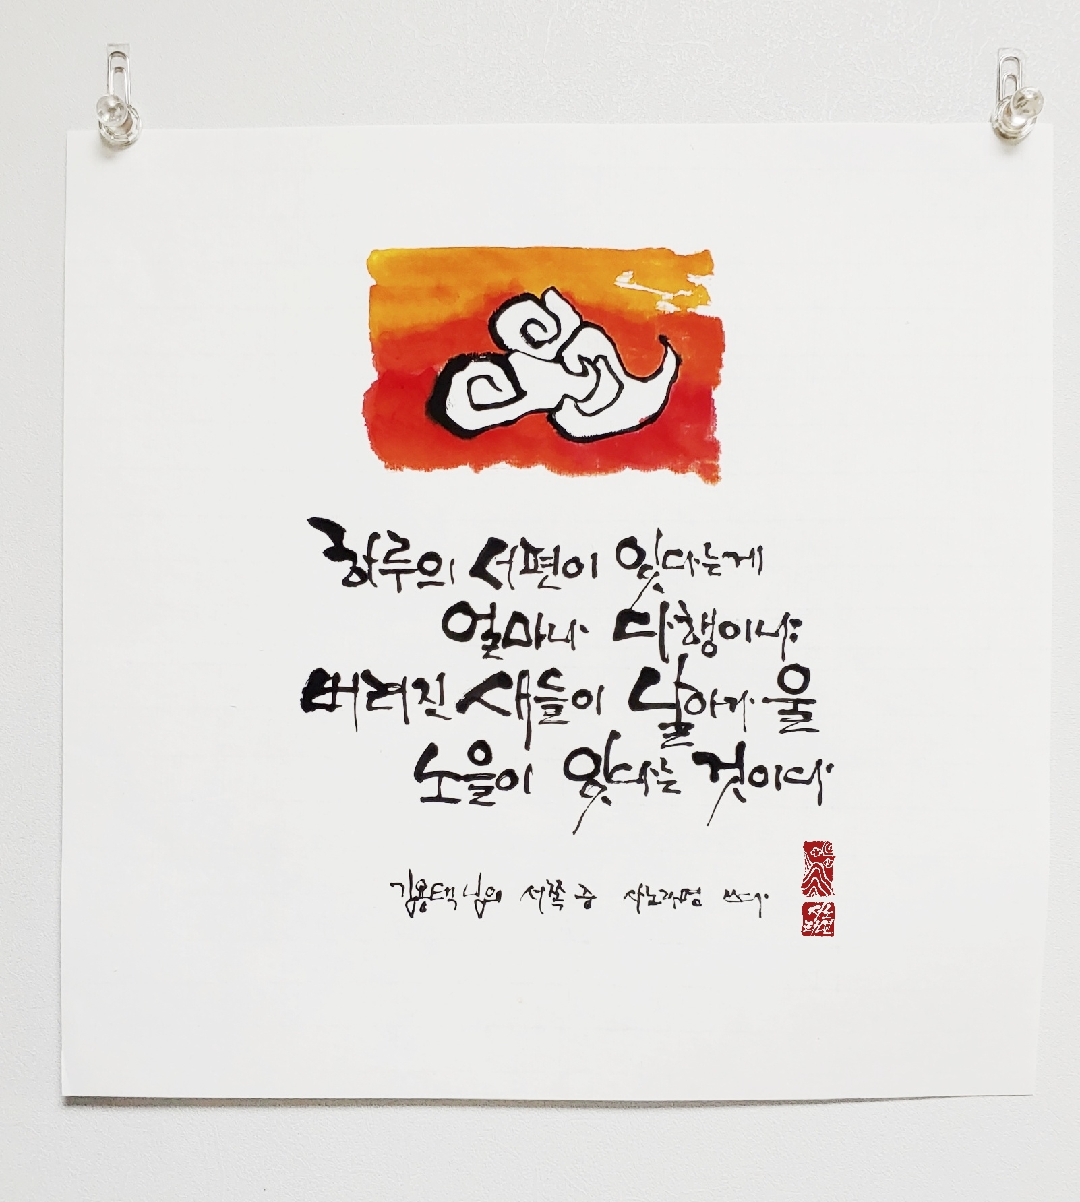 하루의 서편이 있다는게
얼마나 다행이냐
버려진 새들이 날아가 울
노을이 있다는 것이다
김용택님의 서쪽 중 쓰다